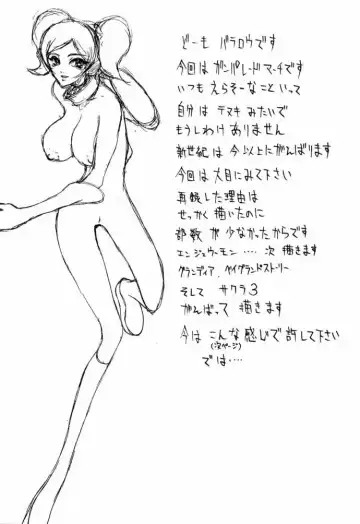 どーも バラロウです
今回は ガンパレードマーチです
いつも えらそーなこといって
自分は テヌキ みたいで
もうしわけ ありません
新世紀は 今以上にがんばります
今回は 大目にみて下さい
再録した理由は
せっかく 描いたのに
部数が少なかったからです
エンジェウーモン ‥‥ 次 描きます
グランディア、ベイグランドストーリー
そして サクラ3
がんばって 描きます
今は こんな感じで許して下さい
(次ページ)
では‥‥